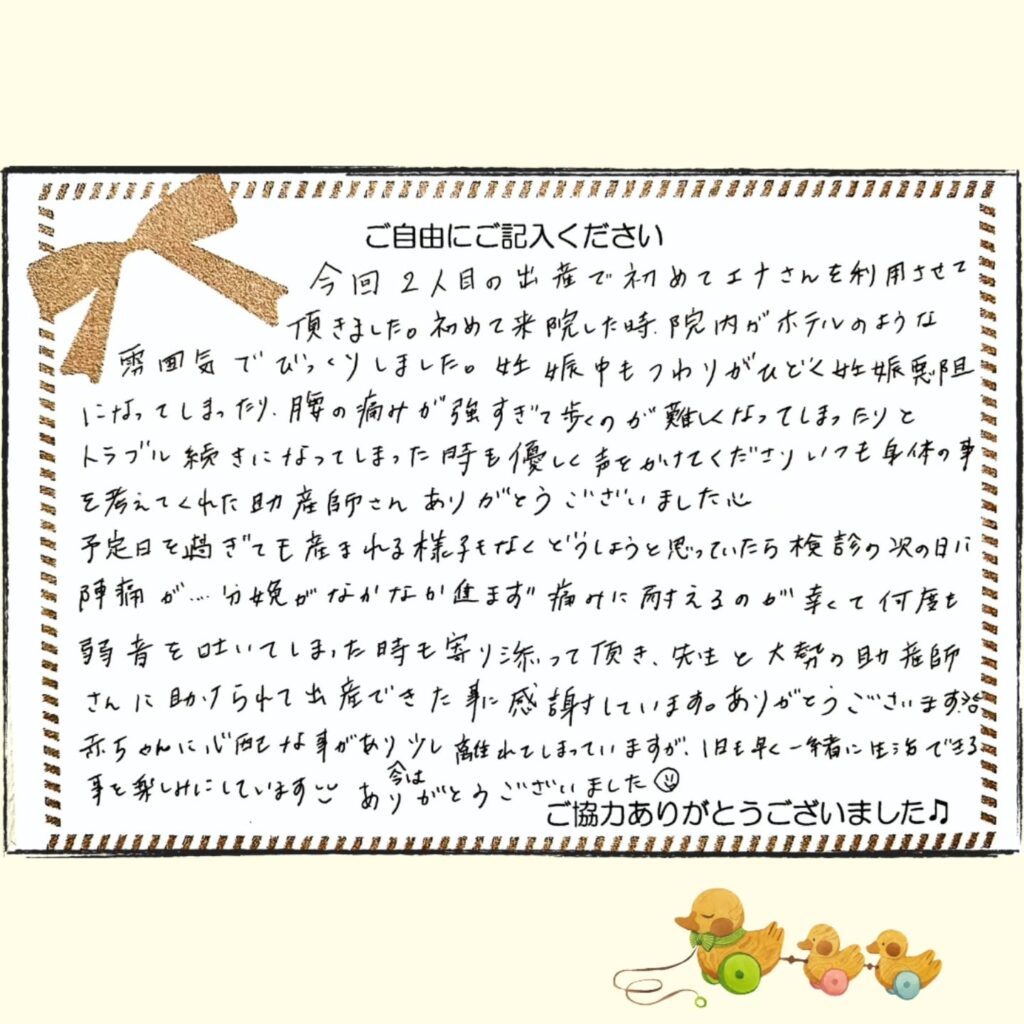 ご自由にご記入ください
今回2人目の出産で初めてエナさんを利用させて
頂きました。初めて来院した時、院内がホテルのような
雰囲気でびっくりしました。妊娠中もつわりがひどく妊娠悪阻
になってしまったり、腰の痛みが強すぎて歩くのが難しくなってしまったりと
トラブル続きになってしまった時も優しく声をかけてくださりいつも身体の事
を考えてくれた助産師さんありがとうございました
予定日を過ぎても産まれる様子もなくどうしようと思っていたら検診の次の日に
陣痛が…分娩がなかなか進まず痛みに耐えるのが辛くて何度も
弱音を吐いてしまった時も寄り添って頂き、先生と大勢の助産師
さんに助けられて出産できた事に感謝しています。ありがとうございます
赤ちゃんに心配な事があり少し離れてしまっていますが、1日も早く一緒に生活できる
事を楽しみにしています 今はありがとうございました
ご協力ありがとうございました♫